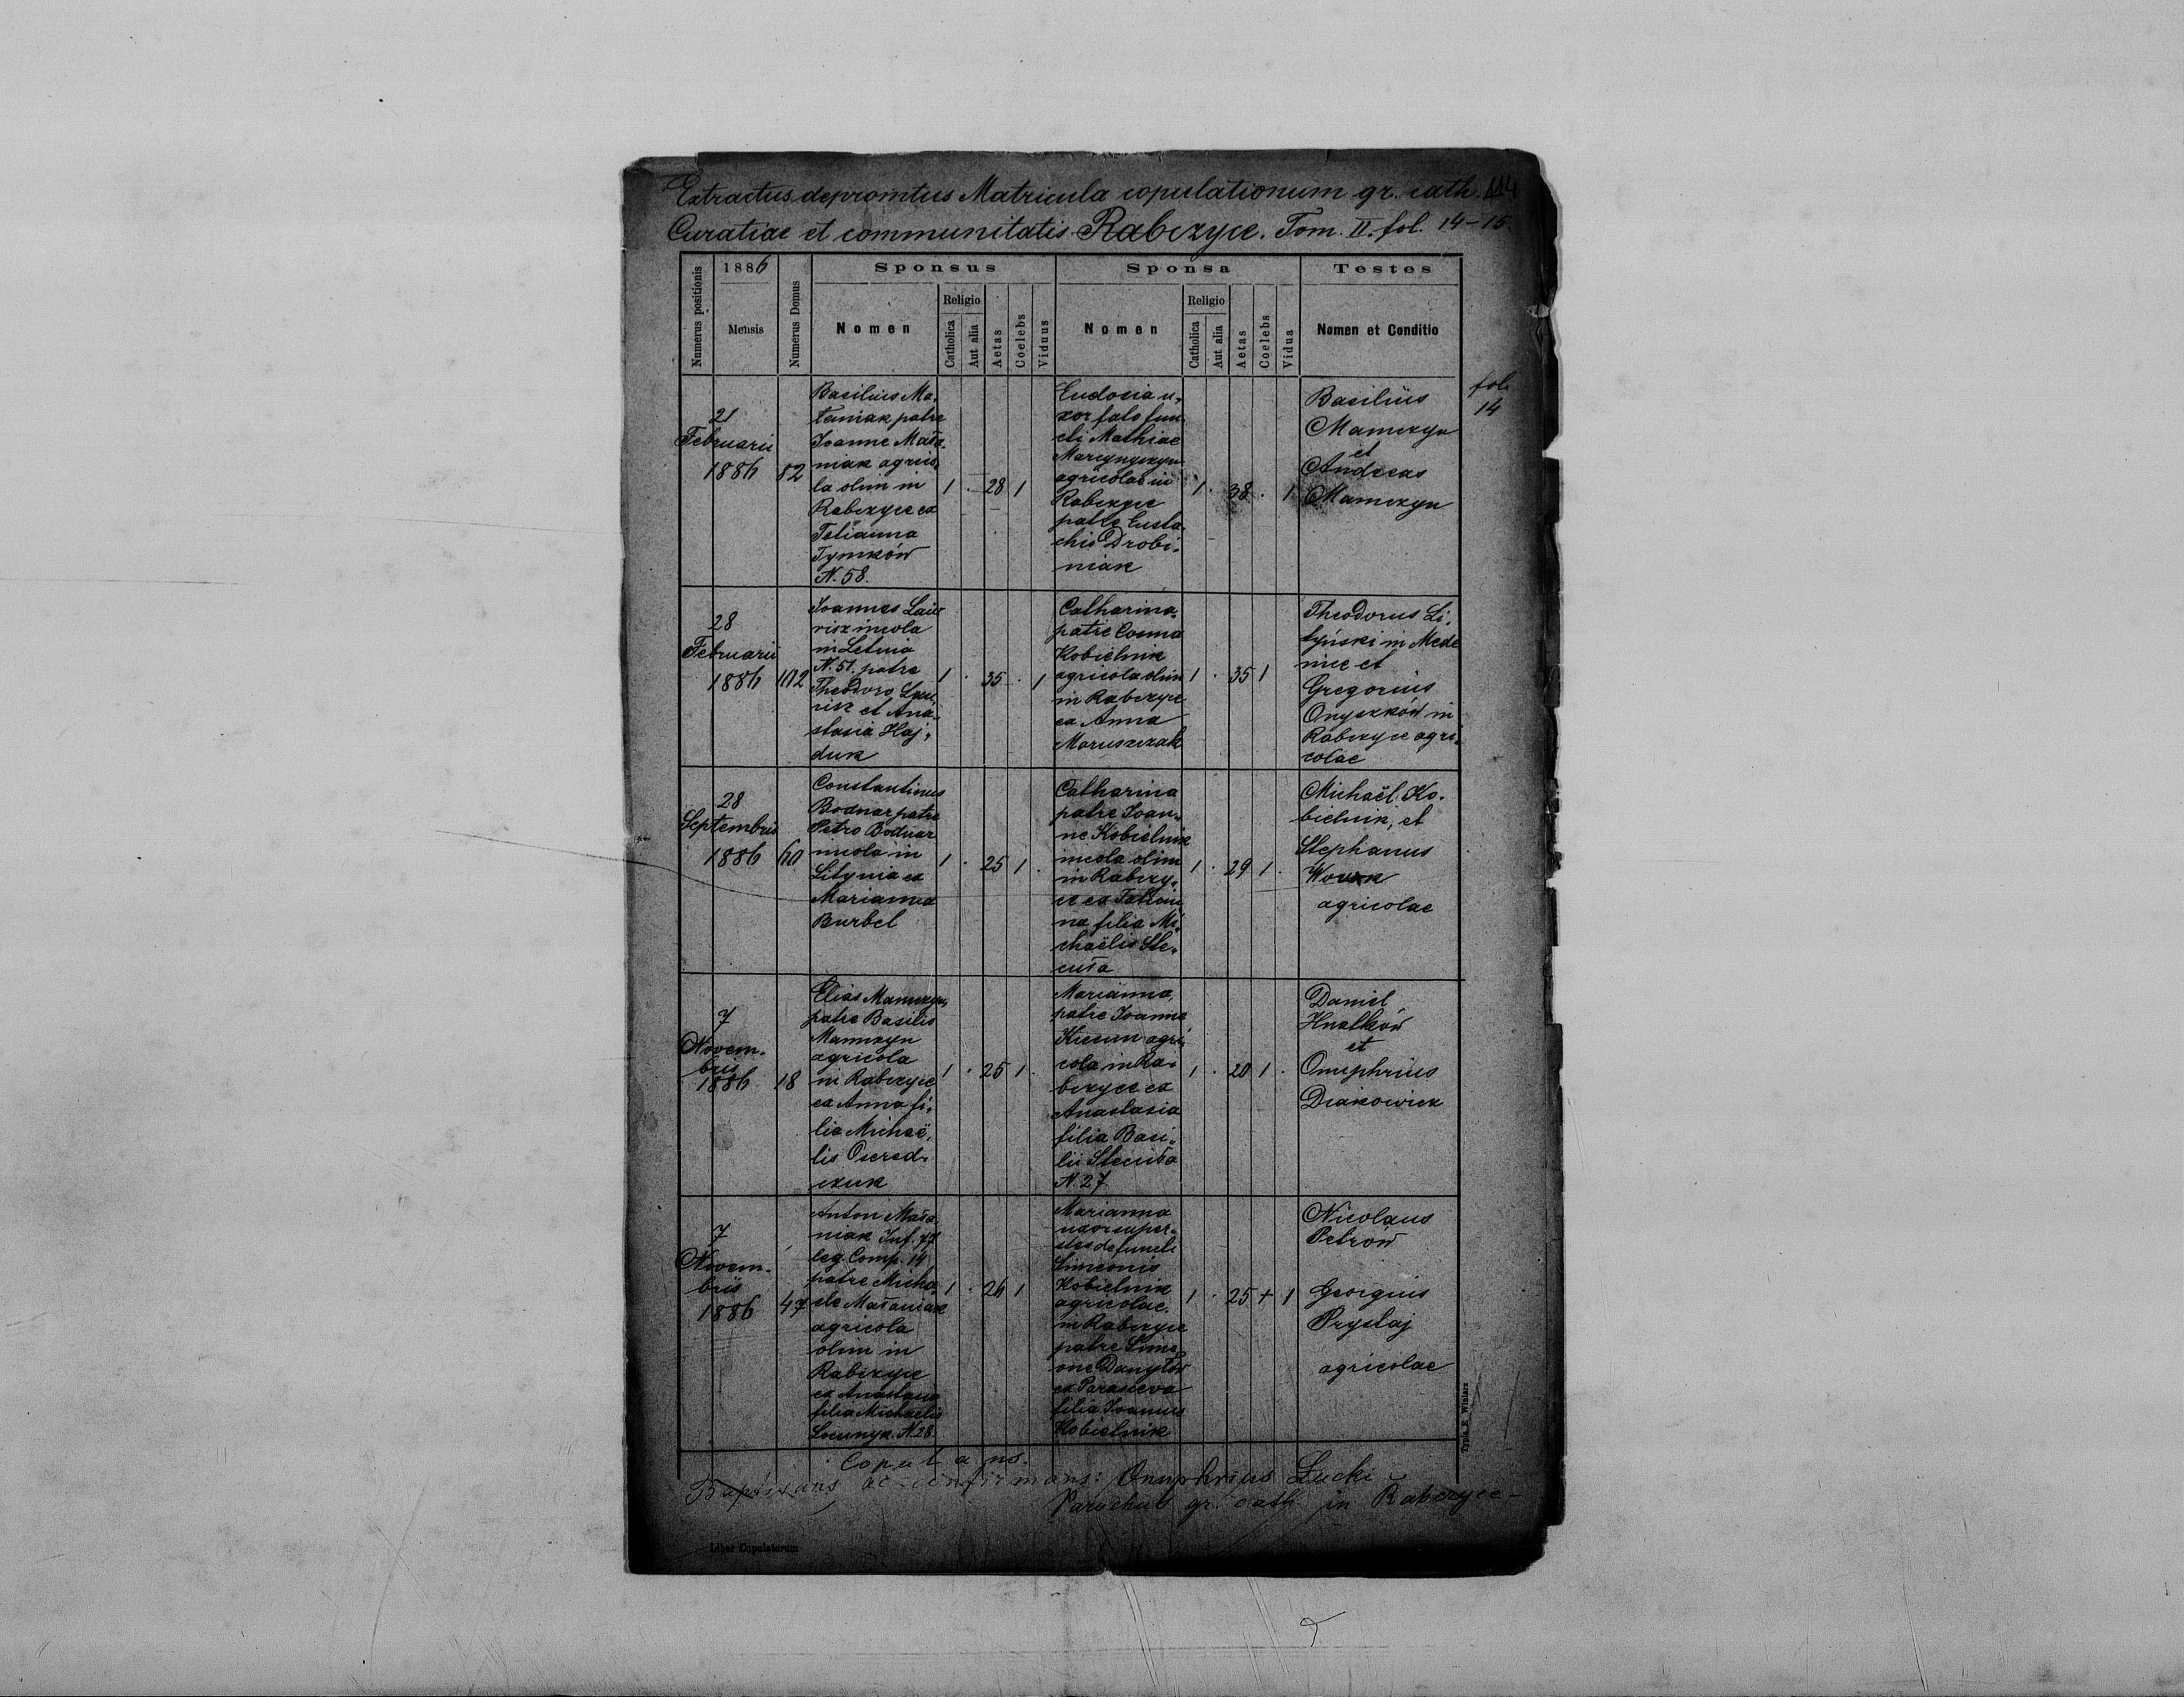 Extractus depromtus Matricula copulationum gr. cath. 114
Curatiae et communitatis Rabczyce. Tom. II. fol. 14-15.
Numerus positionis
1886
Mensis
Numerus Domus
Sponsus
Nomen
Religio
Catholica
Aut alia
Aetas
Coelebs
Viduus
Sponsa
Nomen
Religio
Catholica
Aut alia
Aetas
Coelebs
Vidua
Testes
Nomen et Conditio
fol.
14
21
Februarii
1886
82
Basilius Ma-
łaniak patre
Joanne Mała-
niak agrico-
la olim in
Rabczyce ex
Tymków
N. 58.
1 . 28 1
Eudocia u-
xor fato fun-
cti Mathiae
agricolae in
Rabczyce
patre Eusta-
chio Drobi-
niak
1 . 38 . 1
Basilius
Mamczyn
et
Andreas
Mamczyn
28
Februarii
1886
102
Joannes Law-
risz incola
in Letnia
N. 51. patre
Theodoro Law-
risz et Ana-
stasia Haj-
duk
1 . 35 . 1
Catharina,
patre Cosma
Kobielnik
agricola olim
in Rabczyce
ex Anna
Maruszczak
1 . 35 1
Theodorus Li-
tyński in Mede-
nice et
Gregorius
Onyszków in
Rabczyce agri-
colae
28
Septembris
1886
60
Constantinus
Bodnar patre
Petro Bodnar
incola in
Litynia ex
Marianna
Burbel
1 . 25 1 .
Catharina
patre Joan-
ne Kobielnik
incola olim
in Rabczy-
ce ex Tatian-
na filia Mi-
chaëlis Ste-
cuła
1 . 29 1 .
Michaël Ko-
bielnik, et
Stephanus
agricolae
7
Novem-
bris
1886
18
Elias Mamczyn,
patre Basilio
Mamczyn
agricola
in Rabczyce
ex Anna fi-
lia Michaë-
lis Osered-
czuk
1 . 25 1 .
Marianna,
patre Joanne
Kiecun agri-
cola in Ra-
bczyce ex
Anastasia
filia Basi-
lii Stecuła
N. 27
1 . 20 1 .
Daniel
Hnatków
et
Onuphrius
Diakowicz
7
Novem-
bris
1886
47
Anton Mała-
niak Inf. 77
leg. Comp. 14
patre Micha-
ele Małaniak
agricola
olim in
Rabczyce
ex Anastasia
filia Michaëlis
N. 28
1 . 26 1
Marianna
uxor super-
stes defuncti
Simeonis
Kobielnik
agricolae
in Rabczyce
patre Sime-
one Danyłów
ex Parasceva
filia Joannis
Kobielnik
1 . 25 + 1
Nicolaus
Petrów
Georgius
Prystaj
agricolae
Copulans.
Baptisans ac confirmans: Onuphrius Lucki
Parochus gr. cath. in Rabczyce-
Typis E. Winiarz
Liber Copulatorum